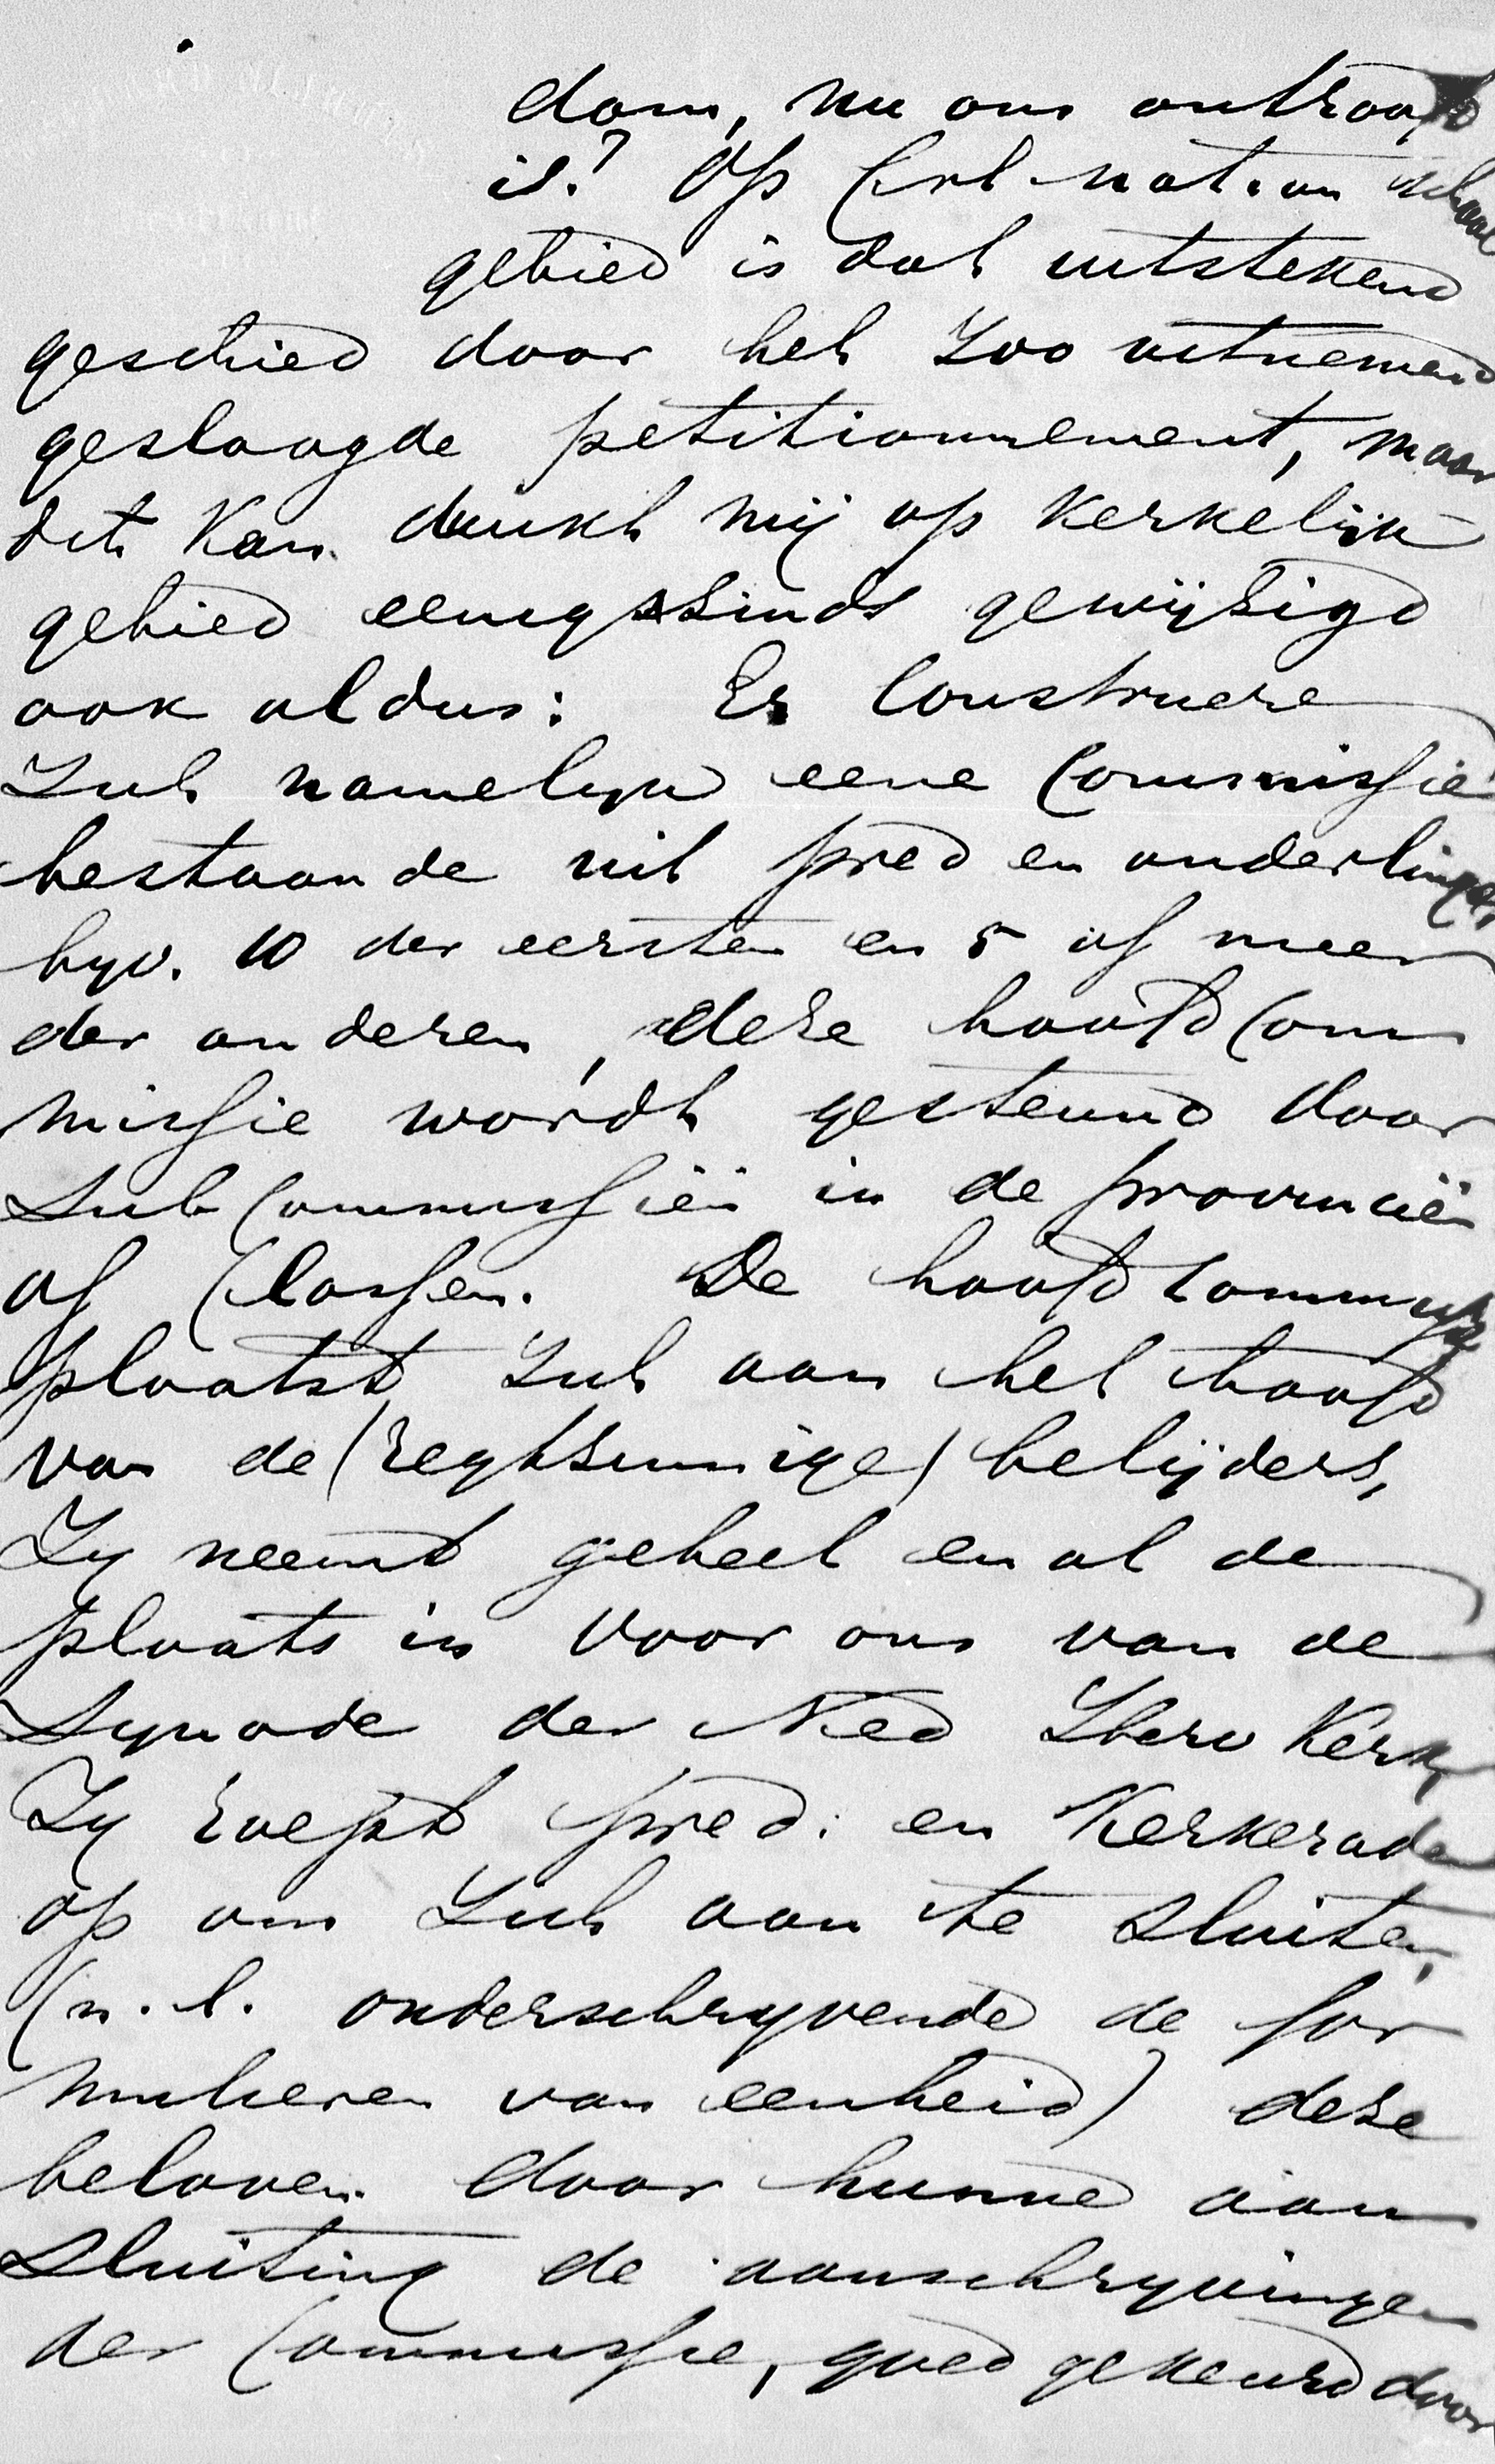 dom, nu ons ontroofd
is? Op Crl. nat. on schaal
gebied is dat uitstekend
geschied door het zoo uitnemend
geslaagde petitionnement, maar
dit kan dunkt mij op kerkelijk
gebied eenigszinds gewijzigd
ook aldus: Er construere
zich namelijk eene Commissie
bestaande uit pred en ouderlingen
byv. 10 der eersten en 5 of meer
der anderen, deze hoofd Com
missie wordt gesteund door
sub Commissiën in de provinciën
of Classen. De hoofd commissie
plaatst zich aan het hoofd
van de (regtzinnige) belijders,
Zy neemt geheel en al de
plaats in voor ons van de
Synode der Ned Herv Kerk,
Zy roept pred: en Kerkeraden
op om zich aan te sluiten,
(n.l. onderschryvende de for
mulieren van eenheid) deze
beloven door hunne aan
sluiting de aanschryvingen
der Commissie, goed gekeurd door